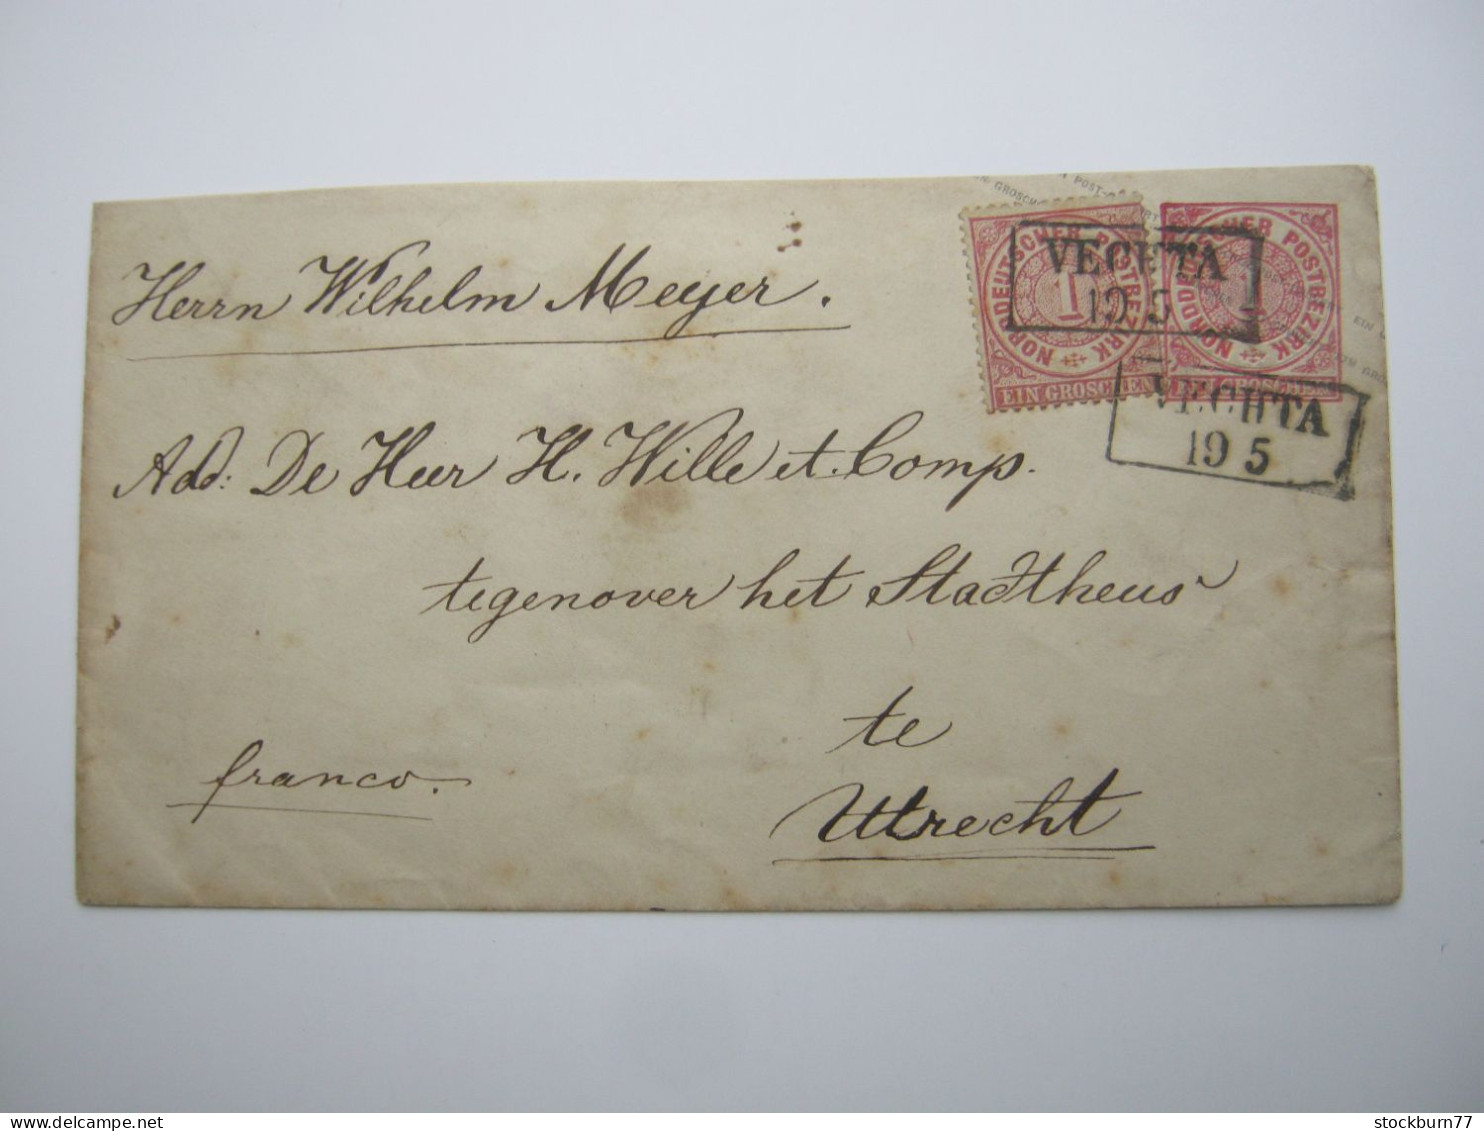 Herrn Wilhelm Meyer.
Add: De Heer H. Wille et Comp.
tegenover het Stadtheus
te
Uttrecht
franco.
NORDDEUTSCHER POSTBEZIRK
1
EIN GROSCHEN
NORDDEUTSCHER POSTBEZIRK
EIN GROSCHEN
VECHTA
19 5
VECHTA
19 5
stockburn77